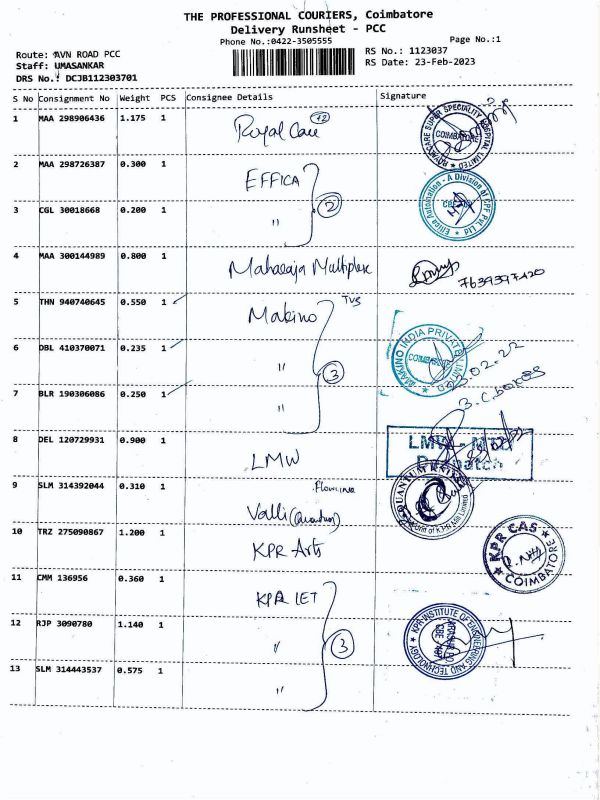 THE PROFESSIONAL COURIERS, Coimbatore
Delivery Runsheet - PCC
Phone No.:0422-3505555
Page No.:1
Route: AVN ROAD PCC
RS No.: 1123037
Staff: UMASANKAR
RS Date: 23-Feb-2023
DRS No.: DCJB112303701
S No Consignment No Weight PCS Consignee Details Signature
1 MAA 298906436 1.175 1 Royal Care
ROYALCARE SUPER SPECIALITY HOSPITAL LIMITED COIMBATORE
2 MAA 298726387 0.300 1 EFFICA
Effica Automation - A Division of CPF Pvt Ltd
3 CGL 30018668 0.200 1 " 2
4 MAA 300144989 0.800 1 Maharaja Multiplex
7639397420
5 THN 940740645 0.550 1 Makino TVS
MAKINO INDIA PRIVATE LIMITED COIMBATORE
6 DBL 410370071 0.235 1 " 3
7 BLR 190306086 0.250 1 "
8 DEL 120729931 0.900 1 LMW
LMW - MTD
Despatch
9 SLM 314392044 0.310 1 Valli
10 TRZ 275090867 1.200 1 KPR Arts
KPR CAS COIMBATORE
11 CMM 136956 0.360 1 KPR IET
12 RJP 3090780 1.140 1 " 3
KPR INSTITUTE OF ENGINEERING AND TECHNOLOGY
13 SLM 314443537 0.575 1 "